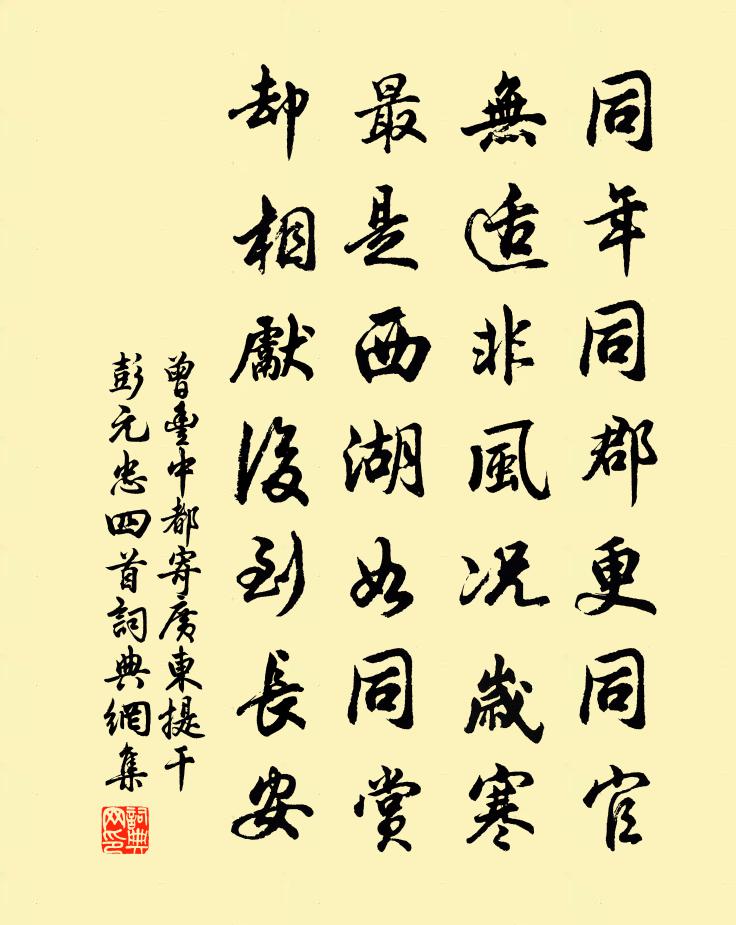 同年同郡更同官
無适非風况歲寒
最是西湖如同赏
却相獻後到長安
曾豊中都寄廣東提干
彭元忠四首詞典網集
詞典网印